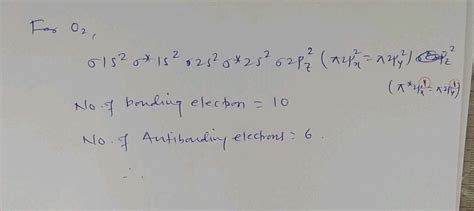 For O₂,
σ1s² σ*1s² σ2s² σ*2s² σ2p_z² (π2p_x² = π2p_y²)
(π*2p_x¹ = π2p_y¹)
No. of bonding electron = 10
No. of Antibonding electrons = 6.
∴